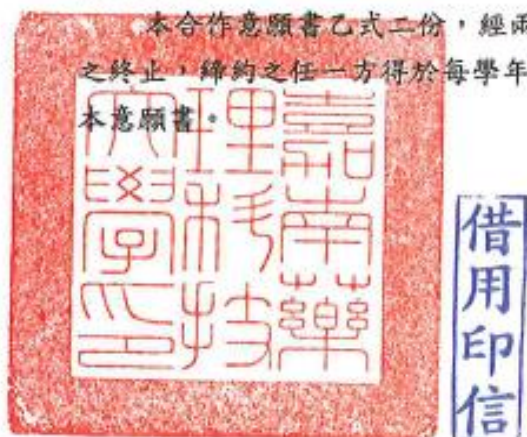 本合作意願書乙式二份，經兩
之終止，締約之任一方得於每學年
本意願書。
嘉南藥
理科技
大學印
借用印信